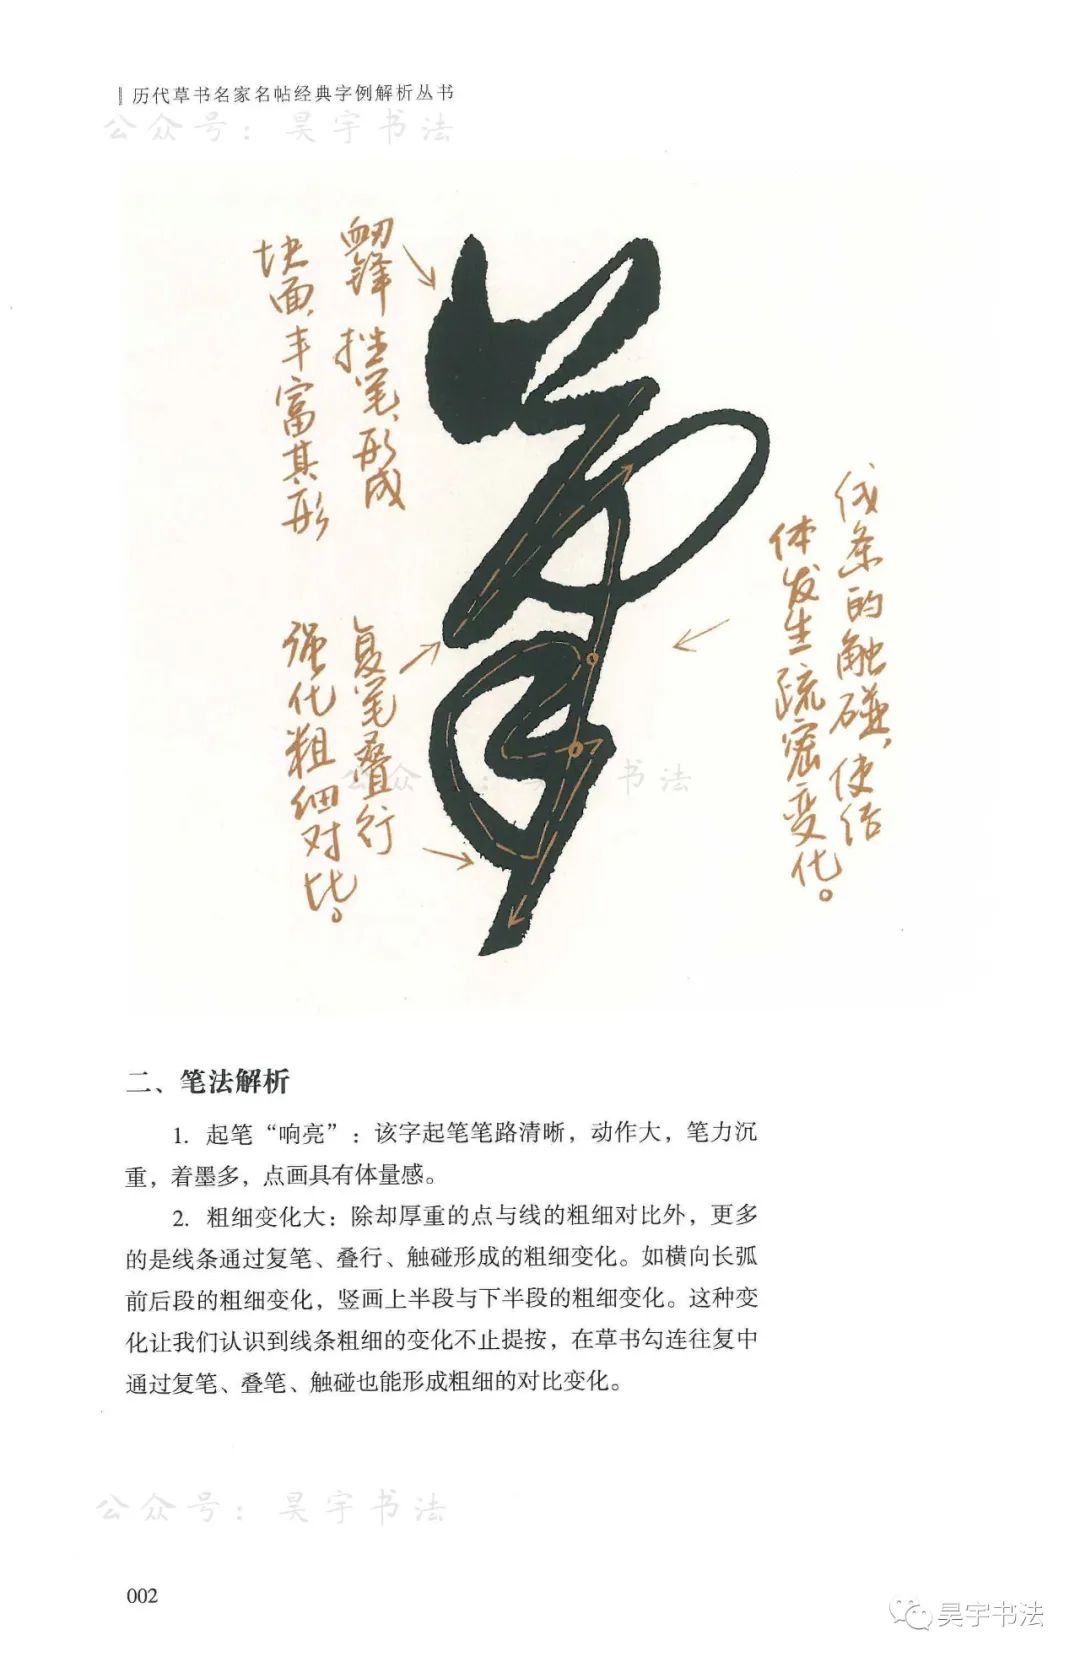 历代草书名家名帖经典字例解析丛书
公众号：昊宇书法
衄锋挫笔、形成
块面、丰富其形
线条的触碰，使结
体发生疏密变化。
复笔叠行
强化粗细对比。
公众号：昊宇书法
二、笔法解析
1. 起笔“响亮”：该字起笔笔路清晰，动作大，笔力沉
重，着墨多，点画具有体量感。
2. 粗细变化大：除却厚重的点与线的粗细对比外，更多
的是线条通过复笔、叠行、触碰形成的粗细变化。如横向长弧
前后段的粗细变化，竖画上半段与下半段的粗细变化。这种变
化让我们认识到线条粗细的变化不止提按，在草书勾连往复中
通过复笔、叠笔、触碰也能形成粗细的对比变化。
公众号：昊宇书法
002
昊宇书法